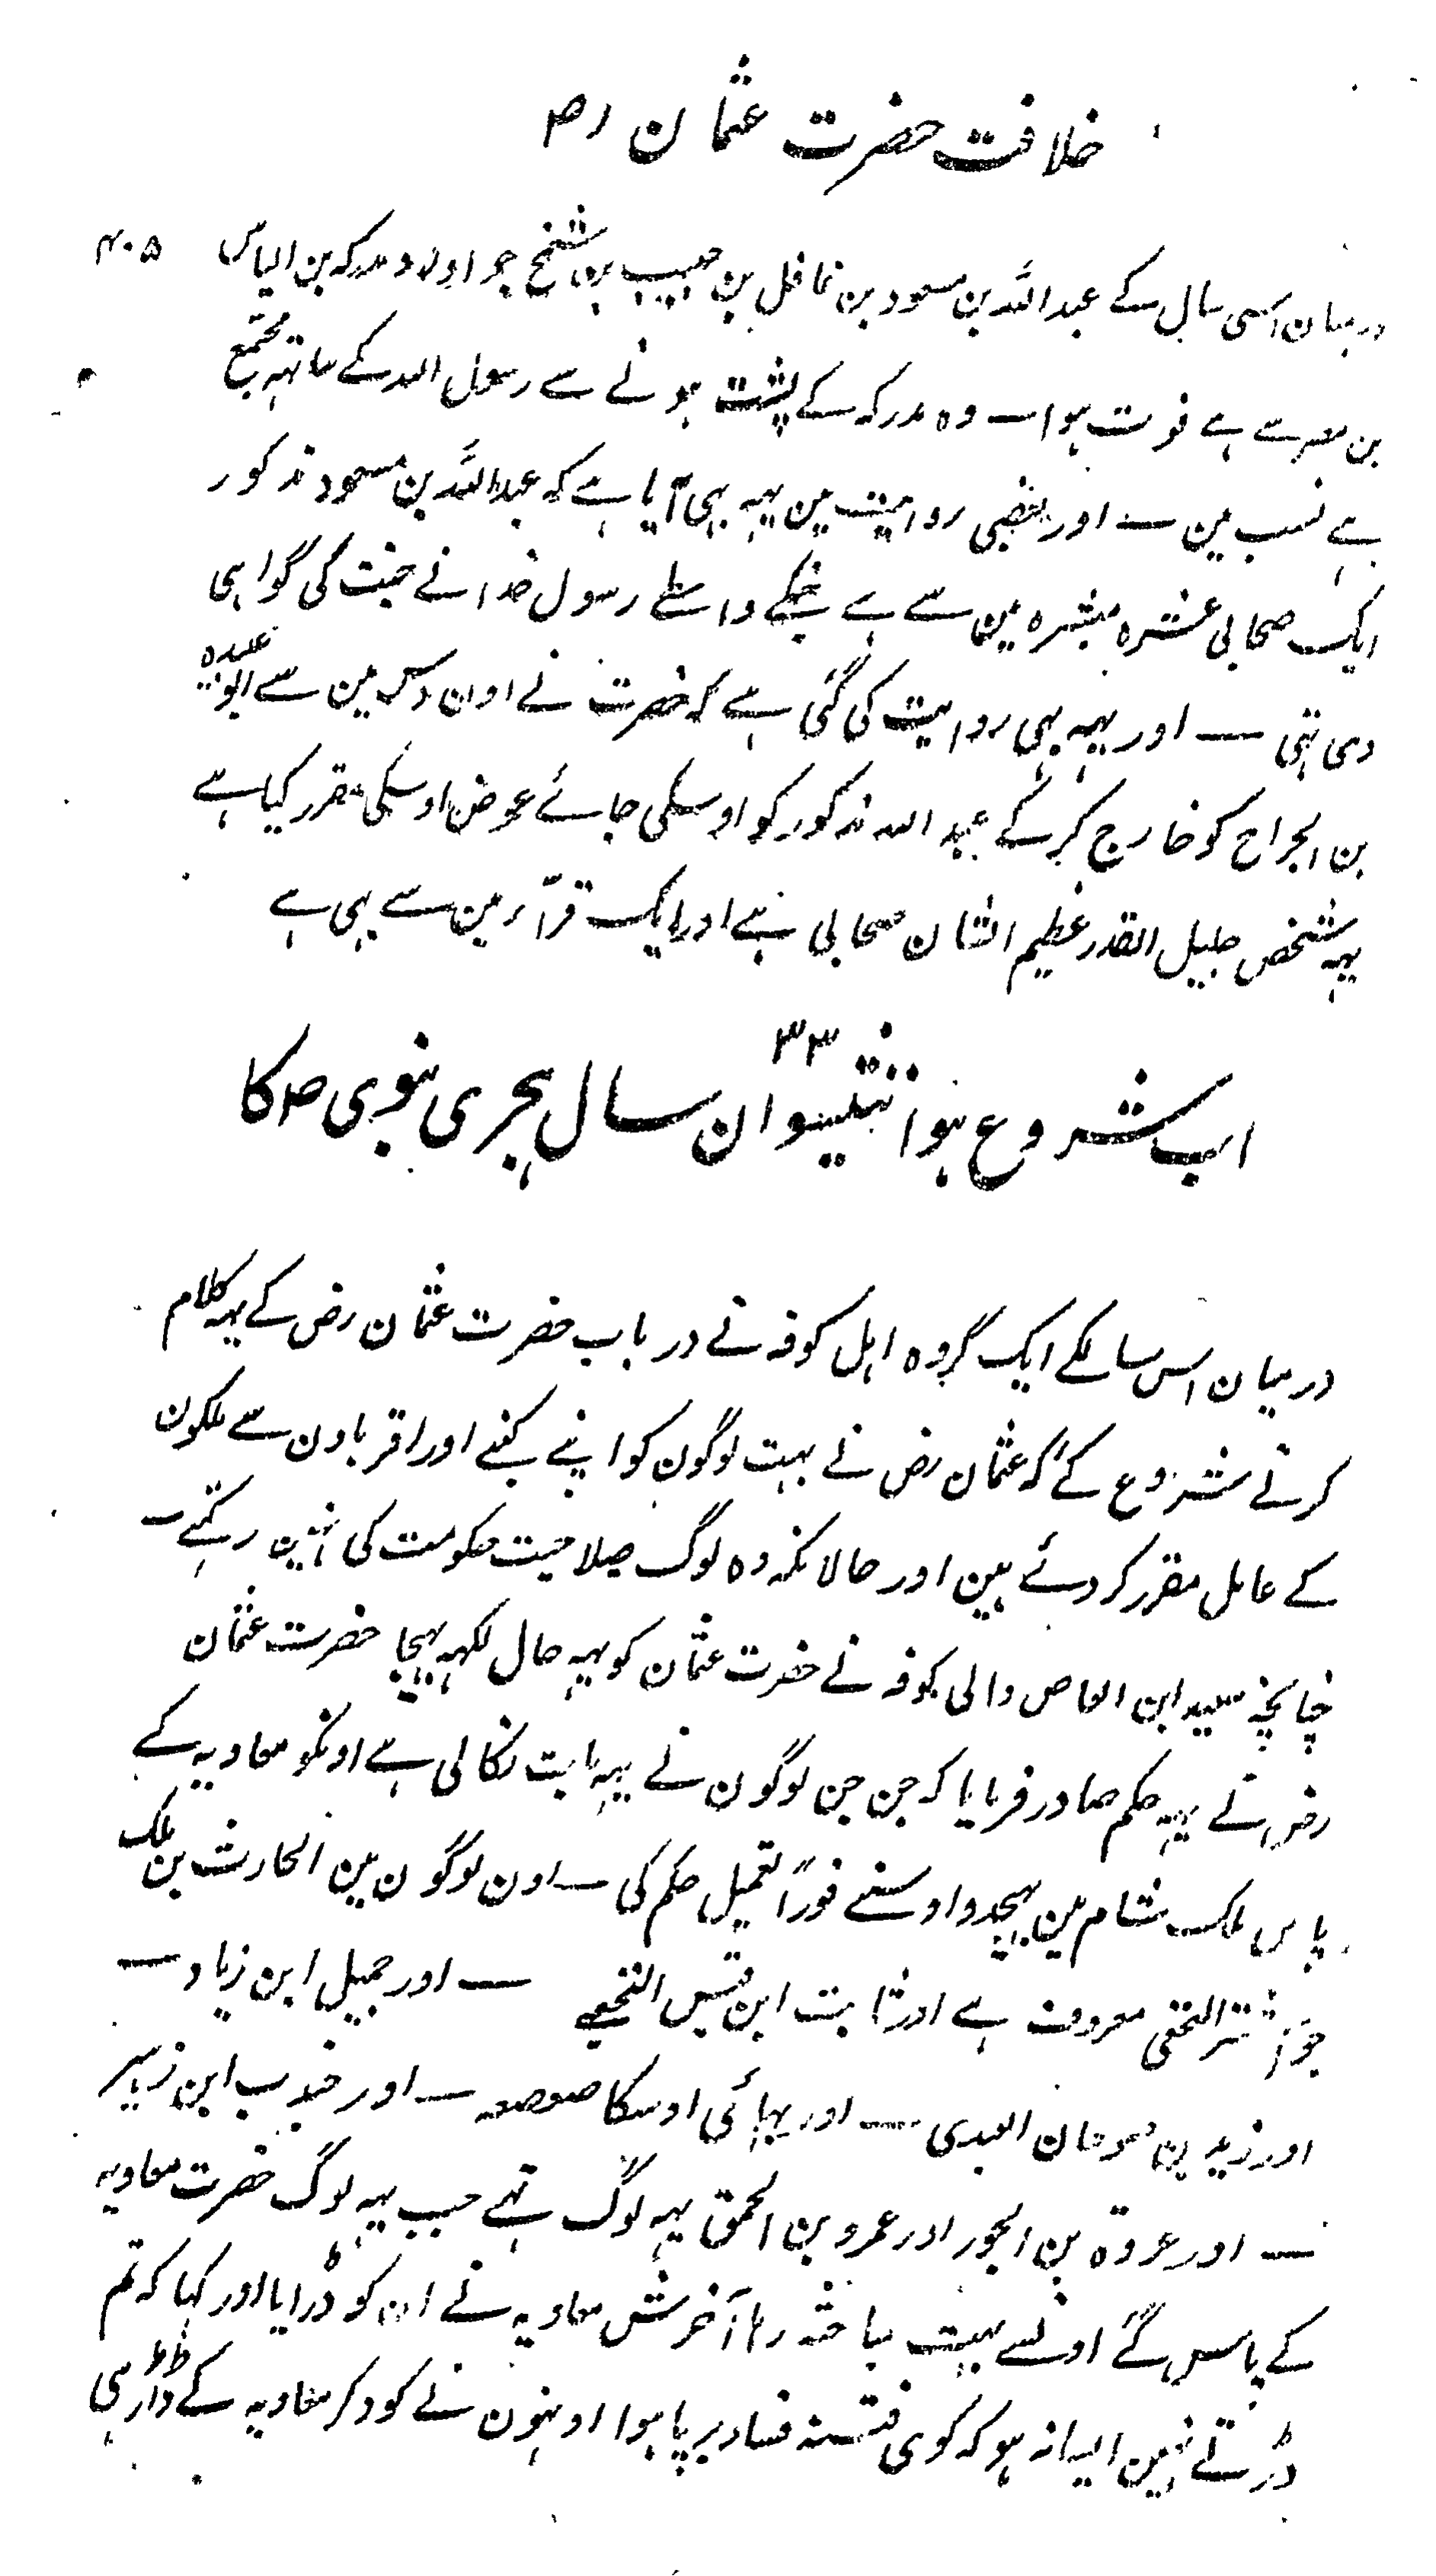 خلافت حضرت عثمان رض
۴۰۵
درمیان اسی سال کے عبد اللہ بن مسعود بن غافل بن حبیب بن شمخ جو اولاد مدرکہ بن الیاس
بن مضر سے ہے فوت ہوا ۔ وہ مدرکہ کے پشت ہونے سے رسول اللہ کے ساتہہ مجتمع
ہے نسب مین ۔ اور بعضی روایت مین یہہ بہی آیا ہے کہ عبد اللہ بن مسعود مذکور
ایک صحابی عشرہ مبشرہ مین سے ہے جنکے واسطے رسول خدا نے جنت کی گواہی
دی تہی ۔ اور یہہ بہی روایت کی گئی ہے کہ حضرت نے اون دس مین سے ابو عبیدہ
بن الجراح کو خارج کر کے عبد اللہ مذکور کو اوسکی جائے عوض اوسکی مقرر کیا ہے
یہہ شخص جلیل القدر عظیم الشان صحابی ہے اور ایک قرّاء مین سے بہی ہے
اب شروع ہوا تینتیسوان ۳۳ سال ہجری نبوی ص کا
درمیان اس سالکے ایک گروہ اہل کوفہ نے در باب حضرت عثمان رض کے یہہ کلام
کرنے شروع کئے کہ عثمان رض نے بہت لوگون کو اپنے کنبے اور اقرباون سے ملکون
کے عامل مقرر کر دئے ہین اور حالانکہ وہ لوگ صلاحیت حکومت کی نہین رکہتے ۔
چنانچہ سعید ابن العاص والی کوفہ نے حضرت عثمان کو یہہ حال لکہہ بہیجا حضرت عثمان
رض نے یہہ حکم صادر فرمایا کہ جن جن لوگون نے یہہ بات نکالی ہے اونکو معاویہ کے
پاس ملک شام مین بہیجدو اوسنے فوراً تعمیل حکم کی ۔ اون لوگون مین الحارث بن ملک
جو اشتر النخعی معروف ہے اور ثابت ابن قیس النخعی ۔ اور جمیل ابن زیاد ۔
اور زید بن صوحان العبدی ۔ اور بہائی اوسکا صعصعہ ۔ اور جندب ابن زہیر
۔ اور عروۃ بن الجور اور عمرو بن الحمق یہہ لوگ تہے جب یہہ لوگ حضرت معاویہ
کے پاس گئے اونسے بہت مباحثہ رہا آخرش معاویہ نے ان کو ڈرایا اور کہا کہ تم
ڈرتے نہین ایسا نہ ہو کہ کوی فتنہ فساد برپا ہوا اونہون نے کود کر معاویہ کے ڈاڑہی